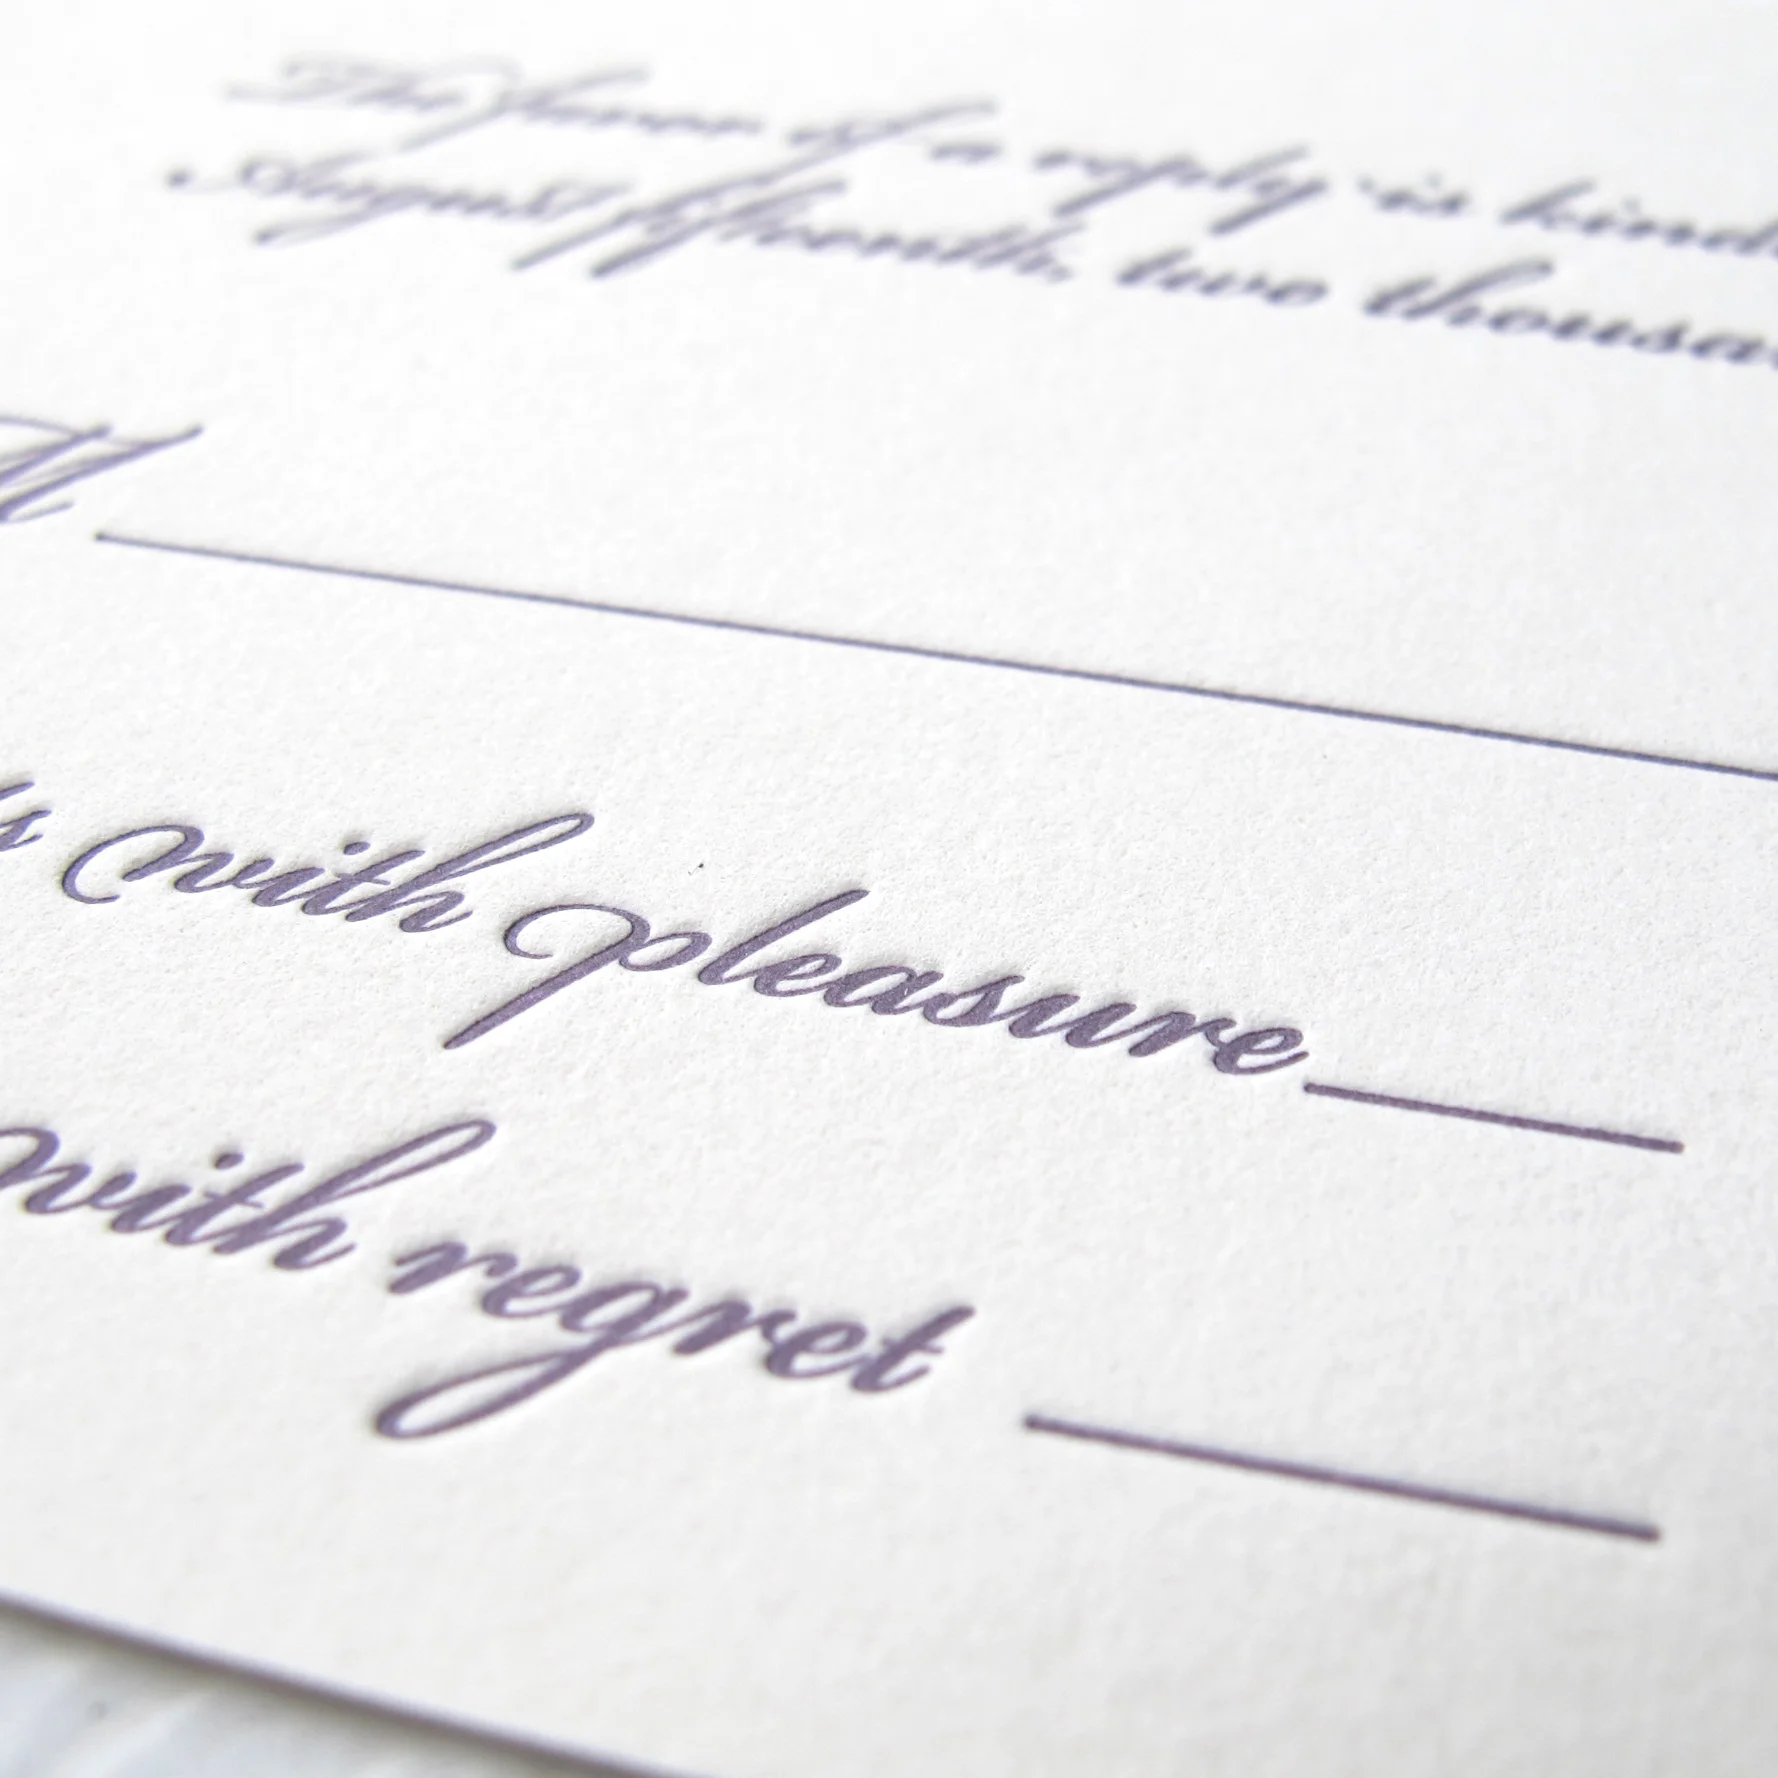 The favor of a reply is kind
August fifteenth, two thousa
M
s with pleasure
with regret